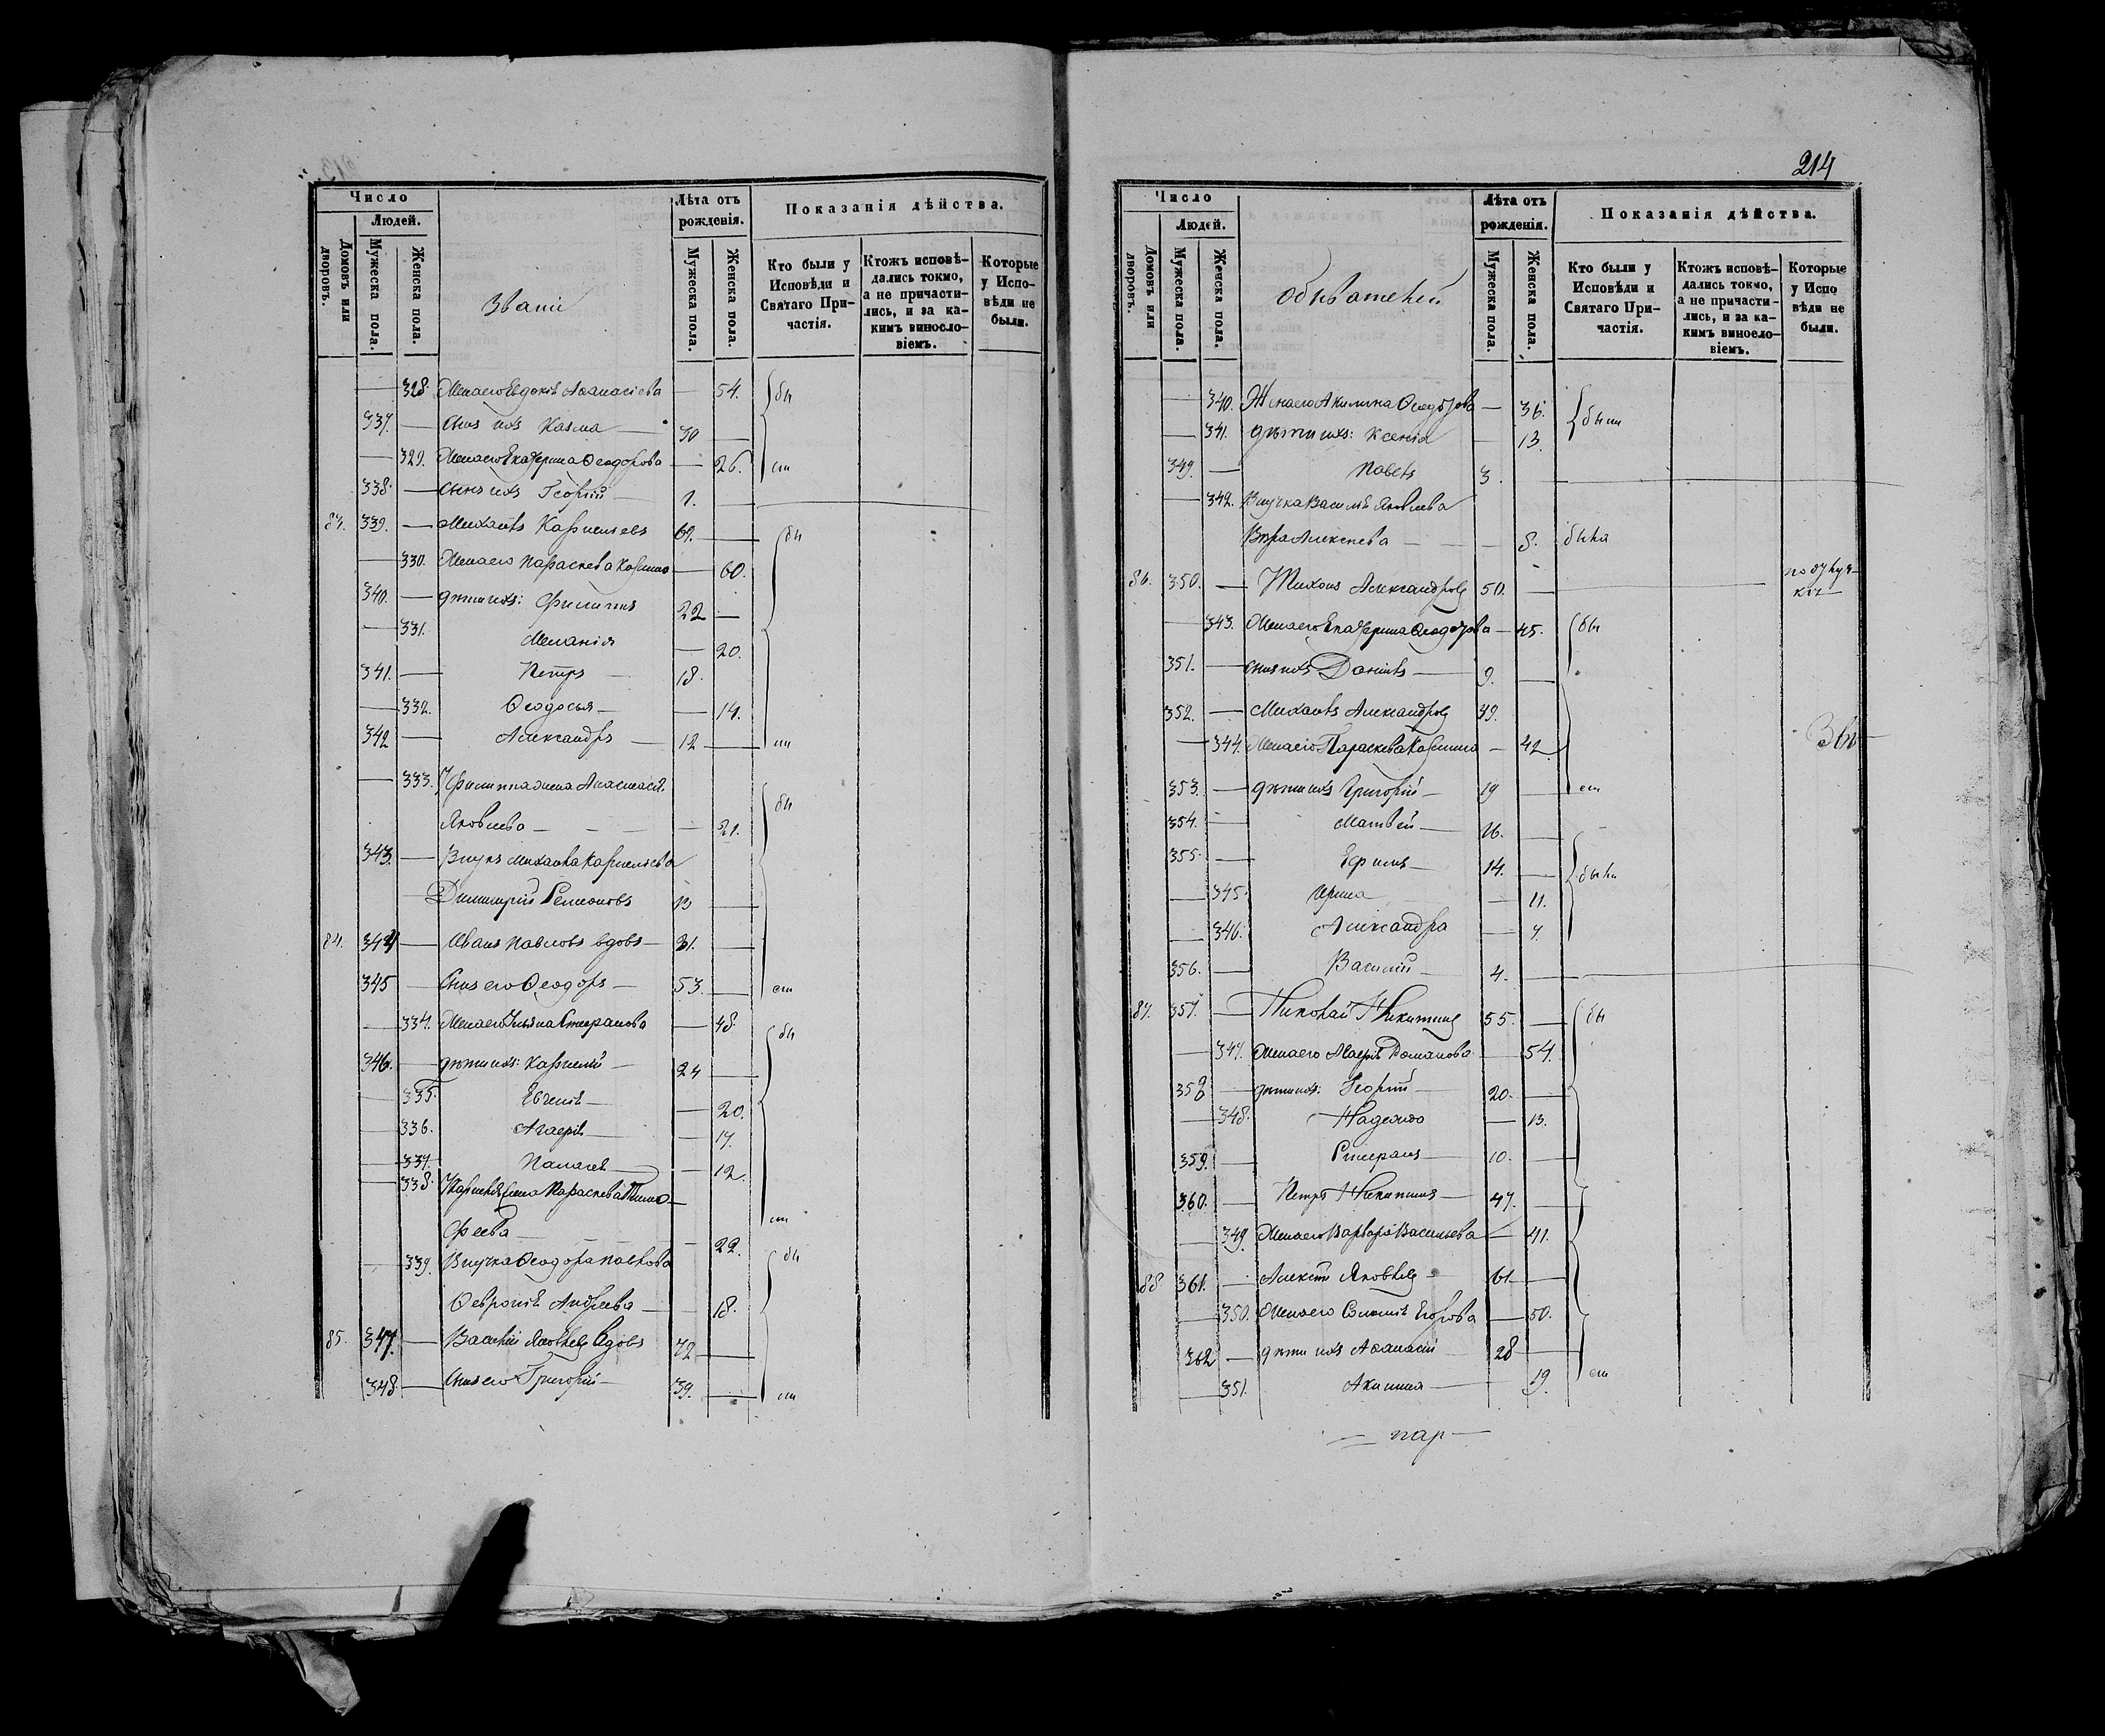 Число
Людей.
Домовъ или дворовъ.
Мужеска пола.
Женска пола.
Званіе
Лѣта отъ рожденія.
Мужеска пола.
Женска пола.
Показанія дѣйства.
Кто были у Исповѣди и Святаго Причастія.
Ктожъ исповѣдались токмо, а не причастились, и за какимъ винословіемъ.
Которые у Исповѣди не были.
— 328. Жена его Евдокія Аѳанасіева — 54. бы
337. — Сынъ ихъ Косма — 30 —
— 329. Жена его Екатерина Ѳеодорова — 26. ли
338. — Сынъ ихъ Георгій — 1. —
83. 339. — Михаилъ Карниліевъ 61. — бы
— 330. Жена его Параскева Космина — 60.
340. — дѣти ихъ: Филиппъ 22 —
— 331. Меланія — 20.
341. — Петръ — 18.
— 332. Ѳеодосья — — 14.
342 — Александръ — 12 — ли
— 333. Филиппа жена Анастасія
Яковлева — — — — 21. бы
343. — Внукъ Михаила Карнилева
Димитрій Симеоновъ 13 —
84. 344 — Иванъ Павловъ вдовъ — 81. —
345 — Сынъ его Ѳеодоръ — 53. — ли
— 334. Жена его Ульяна Стефанова — 48. бы
346. — дѣти ихъ: Карнилій — 24 —
— 335. Евгенія — — 20.
— 336. Агафія — — 17.
— 337. Пелагея — — 12.
— 338. Карнилія жена Параскева Тимо-
феева — — — 22. ли
— 339. Внучка Ѳеодора Павлова
Ѳевронія Андреева — — 18. бы
85. 347. — Василій Яковлевъ вдовъ 72 —
348. — Сынъ его Григорій — 39. — ли
214
Число
Людей.
Домовъ или дворовъ.
Мужеска пола.
Женска пола.
обывателей
Лѣта отъ рожденія.
Мужеска пола.
Женска пола.
Показанія дѣйства.
Кто были у Исповѣди и Святаго Причастія.
Ктожъ исповѣдались токмо, а не причастились, и за какимъ винословіемъ.
Которые у Исповѣди не были.
— 340. Жена его Акилина Ѳеодорова — 36. были
— 341. дѣти ихъ: Ксенія — 13.
349. — Павелъ 3. —
— 342. Внучка Василія Яковлева
Вѣра Алексеева — — — 8. была
86. 350. — Тихонъ Александровъ 50. — по отлуч-
кѣ
— 343. Жена его Екатерина Ѳеодорова — 45. бы
351. — сынъ ихъ Даніилъ — 9. —
352. — Михаилъ Александровъ 49.
— 344. Жена его Параскева Космина — 42
353. — дѣти ихъ Григорій — 19 — ли
354. — Матвей — 16. —
355. — Ефимъ — 14. — были
— 345. Ирина — 11.
— 346. Александра — 7.
356. — Василій — 4. —
87. 357. — Николай Никитинъ 55. — бы
— 347. Жена его Агафія Романова — 54.
358 — дѣти ихъ: Георгій — 20. —
— 348. Надежда — 13.
359. — Стефанъ — 10. —
360. — Петръ Никитинъ — 47. —
— 349 Жена его Варвара Васильева — 41.
88 361. — Алексѣй Яковлевъ — 61 —
— 350. Жена его Соломія Егорова — 50.
362 — дѣти ихъ Аѳанасій 28 —
— 351. Акилина — 19. ли